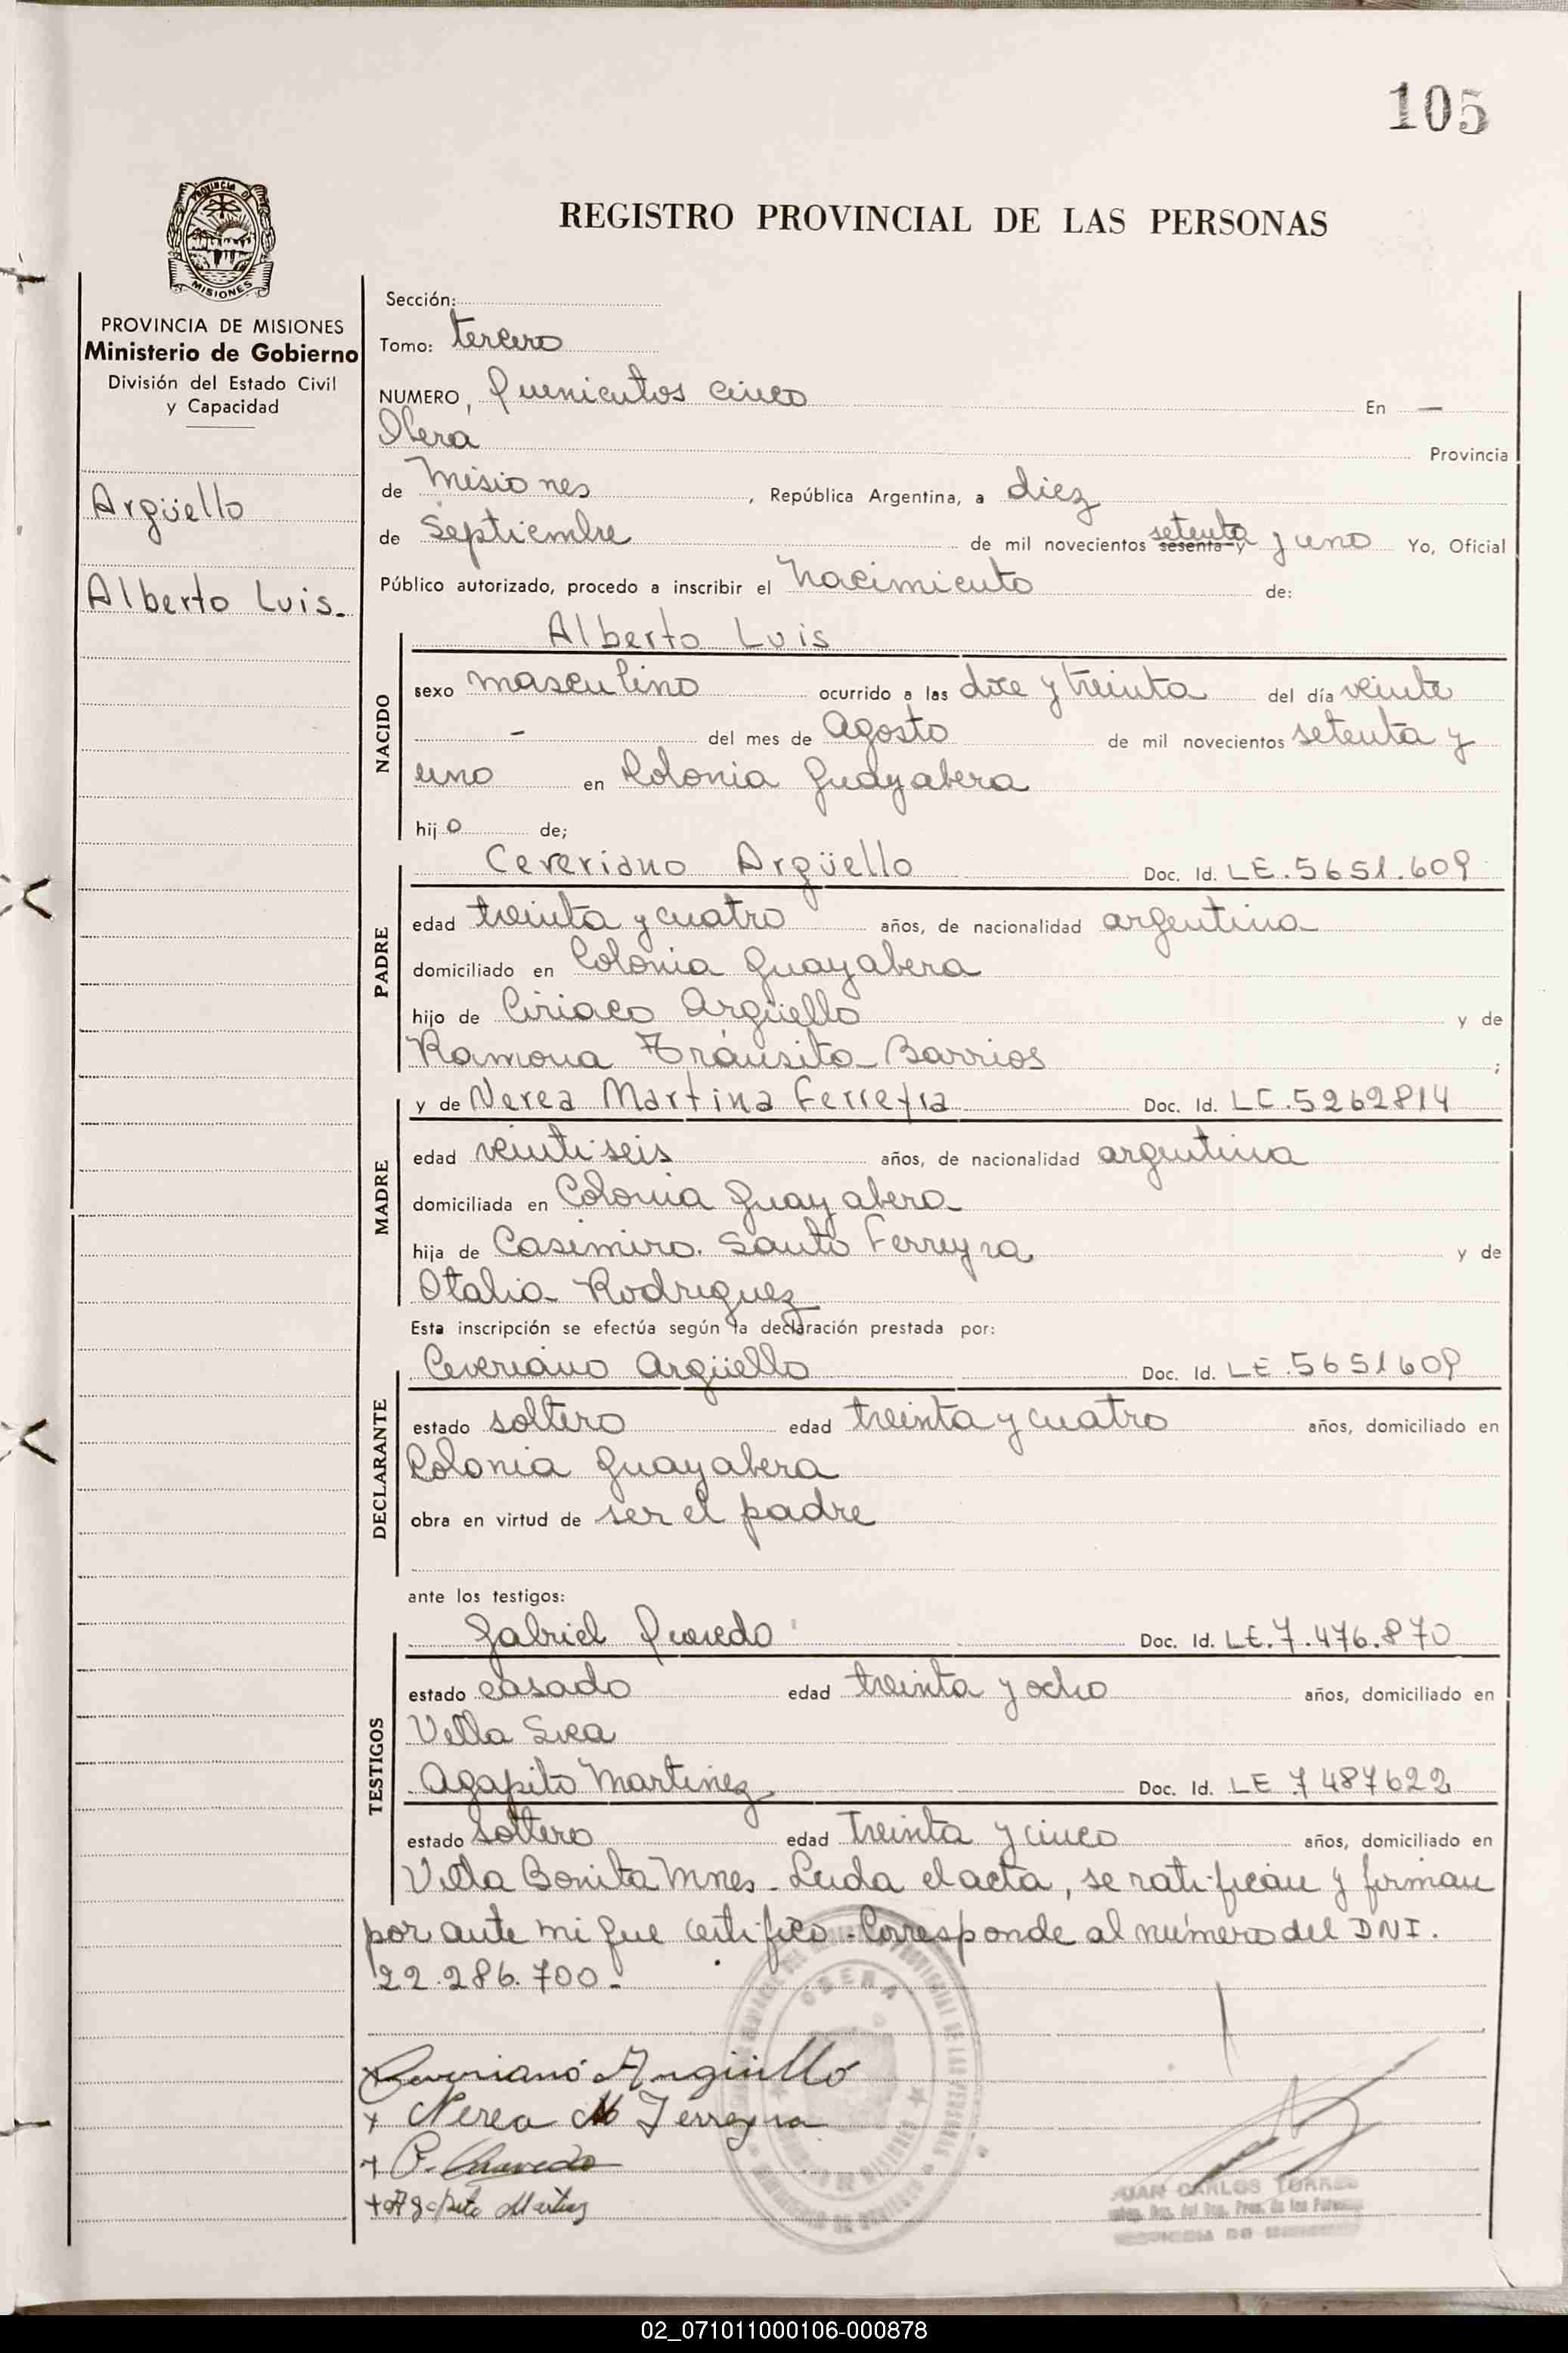 105
PROVINCIA DE
MISIONES
REGISTRO PROVINCIAL DE LAS PERSONAS
PROVINCIA DE MISIONES
Ministerio de Gobierno
División del Estado Civil
y Capacidad
Argüello
Alberto Luis.-
Sección:
Tomo: tercero
NUMERO, Quenientos cinco En —
Obera Provincia
de Misiones, República Argentina, a diez
de Septiembre de mil novecientos sesenta y setenta y uno Yo, Oficial
Público autorizado, procedo a inscribir el Nacimiento de:
Alberto Luis
NACIDO
sexo masculino ocurrido a las doce y treinta del día veinte
- del mes de Agosto de mil novecientos setenta y
uno en Colonia Guayabera
hijo de;
PADRE
Ceveriano Argüello Doc. Id. LE.5651.609
edad treinta y cuatro años, de nacionalidad argentina
domiciliado en Colonia Guayabera
hijo de Ciriaco Argüello y de
Ramona Tránsito Barrios ;
MADRE
y de Nerea Martina Ferreyra Doc. Id. LC.5262814
edad veinti seis años, de nacionalidad argentina
domiciliada en Colonia Guayabera
hija de Casimiro Santo Ferreyra y de
Otalia Rodriguez
Esta inscripción se efectúa según la declaración prestada por:
DECLARANTE
Ceveriano Argüello Doc. Id. LE.5651609
estado soltero edad treinta y cuatro años, domiciliado en
Colonia Guayabera
obra en virtud de ser el padre
ante los testigos:
TESTIGOS
Gabriel Doc. Id. LE.7.476.870
estado casado edad treinta y ocho años, domiciliado en
Villa Svea
Agapito Martinez Doc. Id. LE 7487622
estado soltero edad treinta y cinco años, domiciliado en
Villa Bonita Mnes. Leida el acta, se ratifican y firman
por ante mi que certifico.- Corresponde al número del DNI.
22.286.700.-
OBERA
Ceveriano Argüello
x Nerea M Ferreyra
+ Agapito Martinez
JUAN CARLOS TORRES
02_071011000106-000878